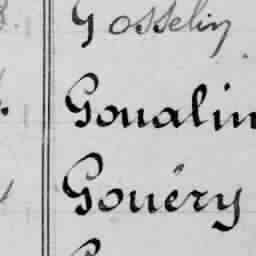 Gosselin
Goualin
Gouéry